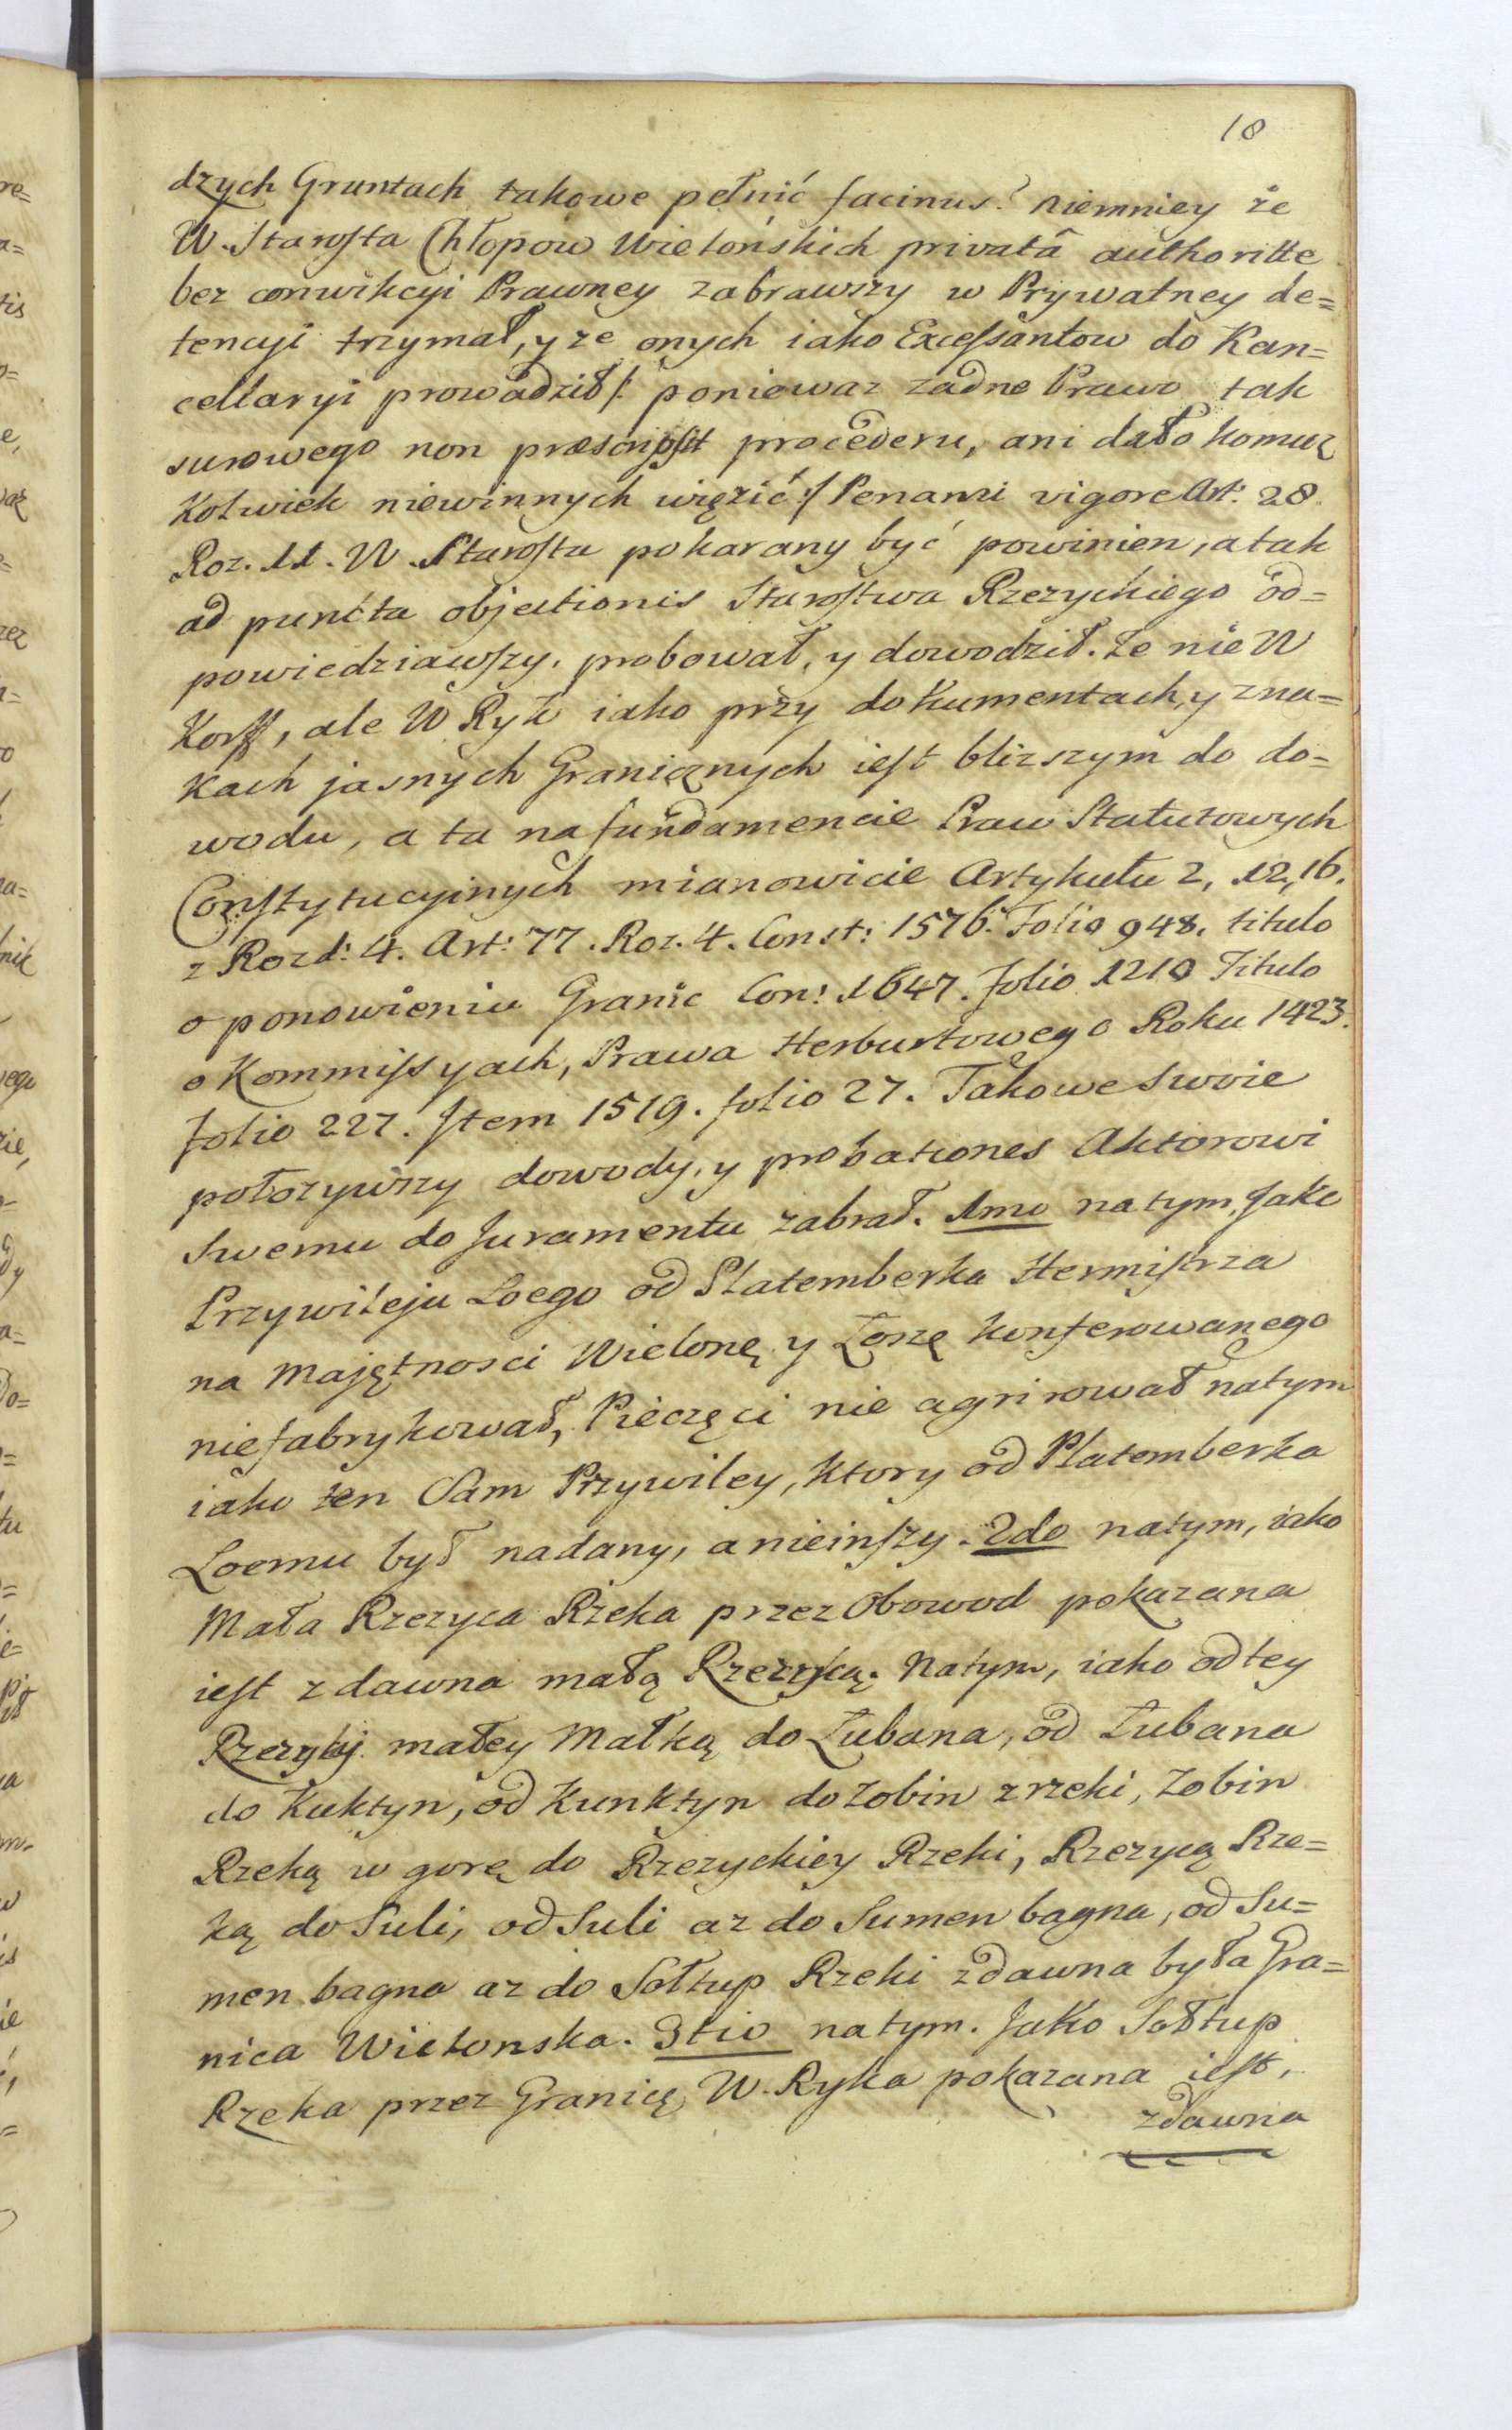 18
dzych Gruntach takowe pełnić facinus. niemniey że
W. Starosta Chłopow Wielońskich privatâ authoritte
bez conwikcyi Prawney zabrawszy w Prywatney de=
tencyi trzymał, y ze onych iako Excessantow do Kan=
cellaryi prowadził /: poniewaz zadne Prawo tak
surowego non præscripsit procederu, ani dało komuż
kolwiek niewinnych więzić :/ Penami vigore Art: 28.
Roz. 11. W. Starosta pokarany być powinien, a tak
ad puncta objectionis Starostwa Rzezyckiego od=
powiedziawszy, probował, y dowodził. Ze nie W
Korff, ale W Ryk iako przy dokumentach, y zna=
kach jasnych Granicznych iest blizszym do do=
wodu, a ta na fundamencie Praw Statutowych
Constytucyinych mianowicie Artykułu 2, 12, 16.
z Rozd: 4. Art: 77. Roz. 4. Const: 1576. Folio 948. titulo
o ponowieniu Granic Con: 1647. folio 1210 Titulo
o Kommissyach, Prawa Herburtowego Roku 1423.
folio 227. Item 1519. folio 27. Takowe swoie
położywszy dowody, y probationes Aktorowi
Swemu do Juramentu zabrał. 1mo na tym, Jako
Przywileju Loego od Platemberka Hermistrza
na Majętnosci Wielonę y Łozę konferowanego
nie fabrykował, Pieczęci nie agrirował na tym
iako ten Sam Przywiley, ktory od Platemberka
Loemu był nadany, a nieinszy. 2do natym, iako
Mała Rzezyca Rzeka przez Obowod pokazana
iest z dawna małą Rzezycą. Natym, iako od tey
Rzezycy małey Małką do Łubana, od Łubana
do Kuktyn, od Kunktyn do Zobin z rzeki, Zobin
Rzeką w gorę do Rzezyckiey Rzeki, Rzezycą Rze=
ką do Suli, od Suli az do Sumen bagna, od Su=
men bagna az do Sołtup Rzeki zdawna była Gra=
nica Wielonska. 3tio na tym. Jako Sołtup
Rzeka przez Granicę W. Ryka pokazana iest,
zdawna